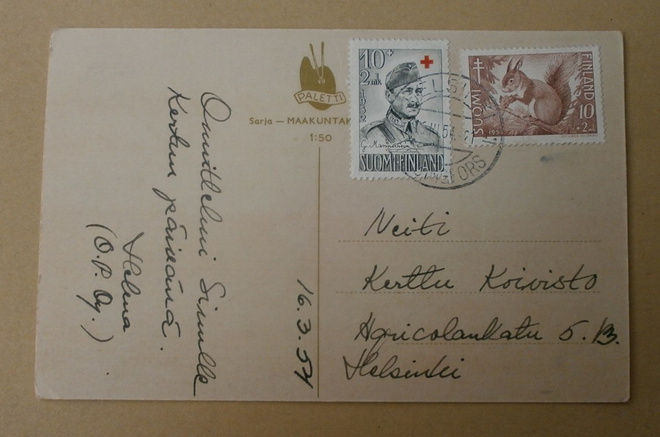 PALETTI
Sarja — MAAKUNTAK
1:50
Onnitteluni Sinulle
Kertun päivänä.
Helma
(O.P. Oy.)
16.3.54
10+
2 mk
1952
SUOMI-FINLAND
FINLAND
SUOMI
10
+2
Neiti
Kerttu Koivisto
Agricolankatu 5. B.
Helsinki